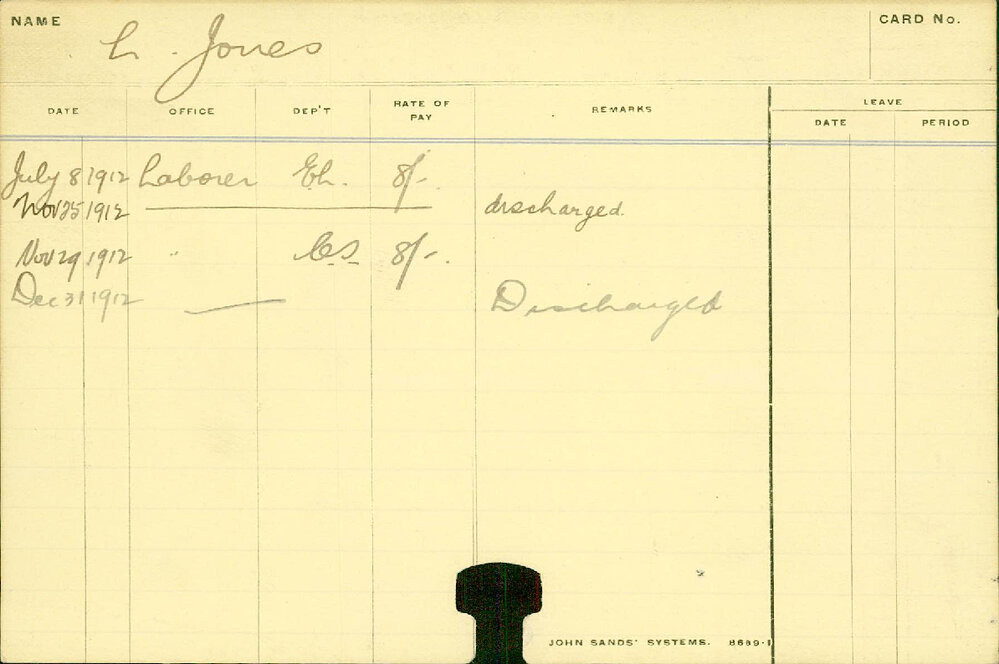 NAME L. Jones CARD No.
DATE OFFICE DEP'T RATE OF PAY REMARKS LEAVE
DATE PERIOD
July 8 1912 Laborer Eh. 8/-.
Nov 25 1912 discharged.
Nov 29 1912 " 8/-.
Dec 31 1912 Discharged
JOHN SANDS' SYSTEMS. 8689-1